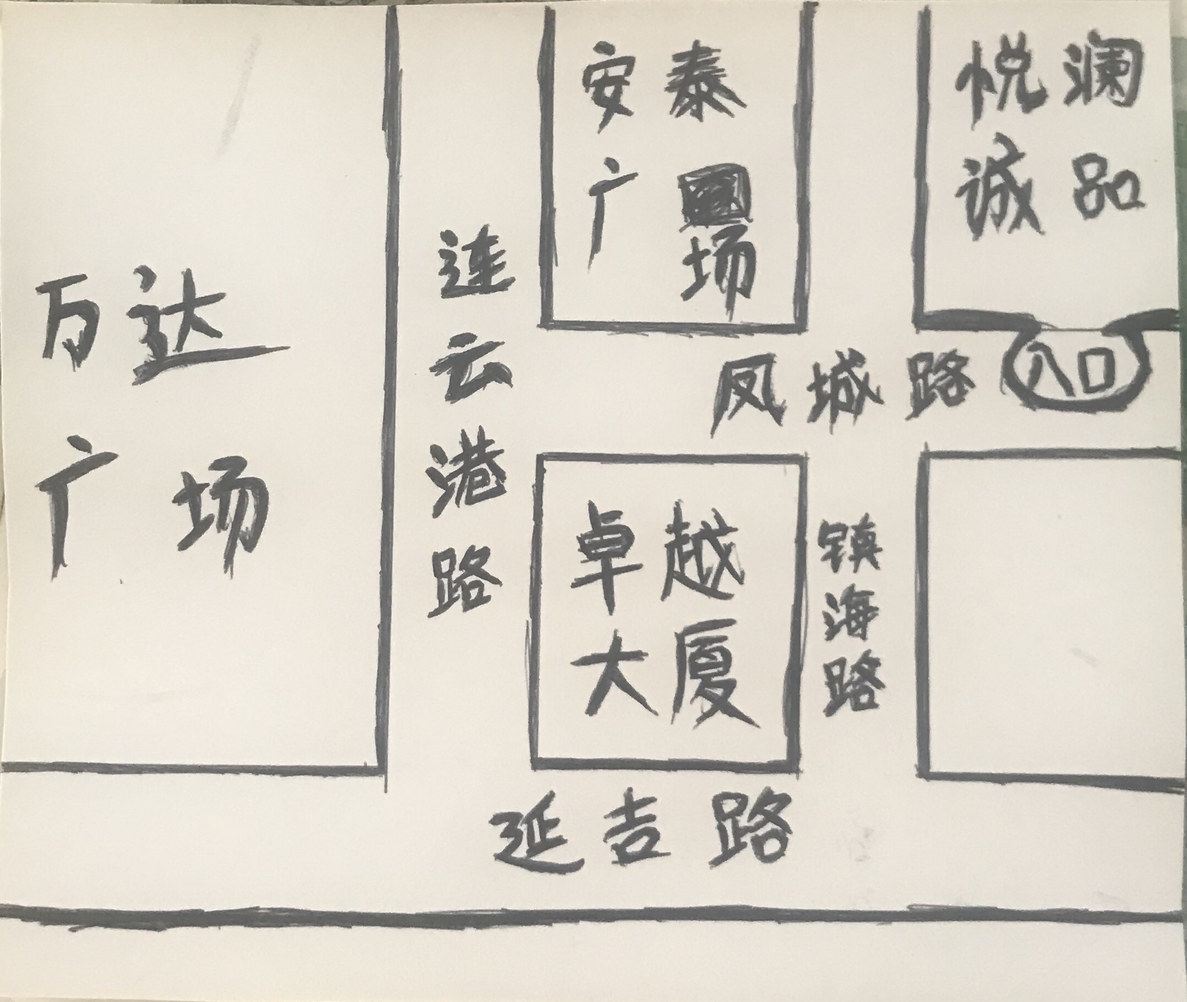 安泰
广场
悦澜
诚品
万达
广场
连云港路
凤城路
入口
卓越
大厦
镇海路
延吉路